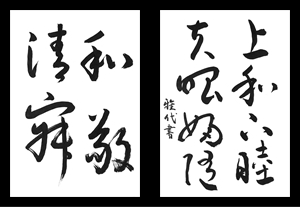 上和下睦
夫唱婦随
和敬
清寂